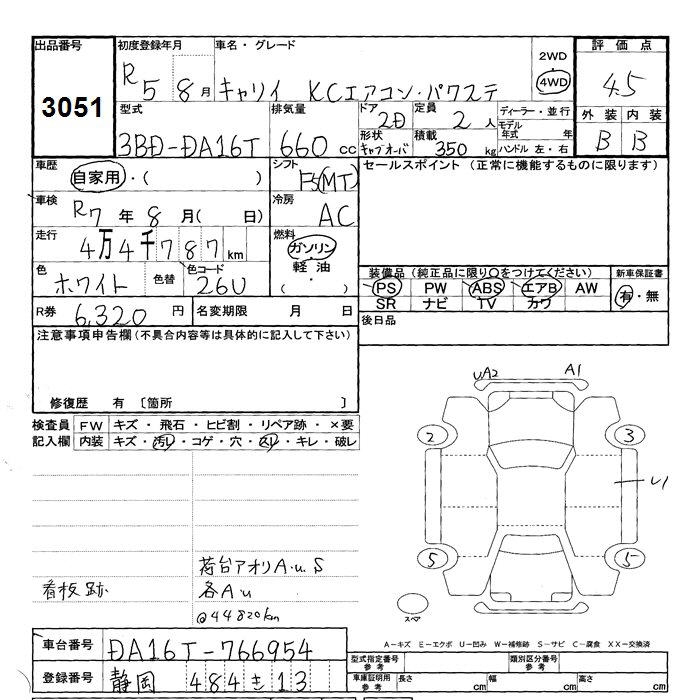 出品番号 初度登録年月 車名・グレード 2WD 評価点
3051 R5 8月 キャリイ KCエアコン・パワステ 4WD 4.5
型式 排気量 ドア 定員 ディーラー・並行 外装 内装
3BD-DA16T 660 cc 2D 2人 モデル年式 年 B B
形状 キャブオーバ 積載 350 kg ハンドル 左・右
車歴 自家用・( ) シフト F5(MT) セールスポイント (正常に機能するものに限ります)
車検 R7年 8月( 日) 冷房 AC
走行 4万4千787km 燃料 ガソリン
軽油
( ・ )
色 ホワイト 色替 色コード 26U
装備品(純正品に限り○をつけてください) 新車保証書
PS PW ABS エアB AW 有・無
SR ナビ TV カワ
R券 6,320円 名変期限 月 日 後日品
注意事項申告欄(不具合内容等は具体的に記入して下さい)
修復歴 有 [箇所 ]
検査員 FW キズ・飛石・ヒビ割・リペア跡・×要
記入欄 内装 キズ・汚レ・コゲ・穴・スレ・キレ・破レ
UA2 A1
2 3
U1
5 5
荷台アオリA.u.S
看板跡 各Au
@44820km
スペア
A-キズ E-エクボ U-凹み W-補修跡 S-サビ C-腐食 XX-交換済
車台番号 DA16T-766954
型式指定番号 参考 類別区分番号 参考
登録番号 静岡 484 き 13
車庫証明用 参考 長さ cm 幅 cm 高さ cm